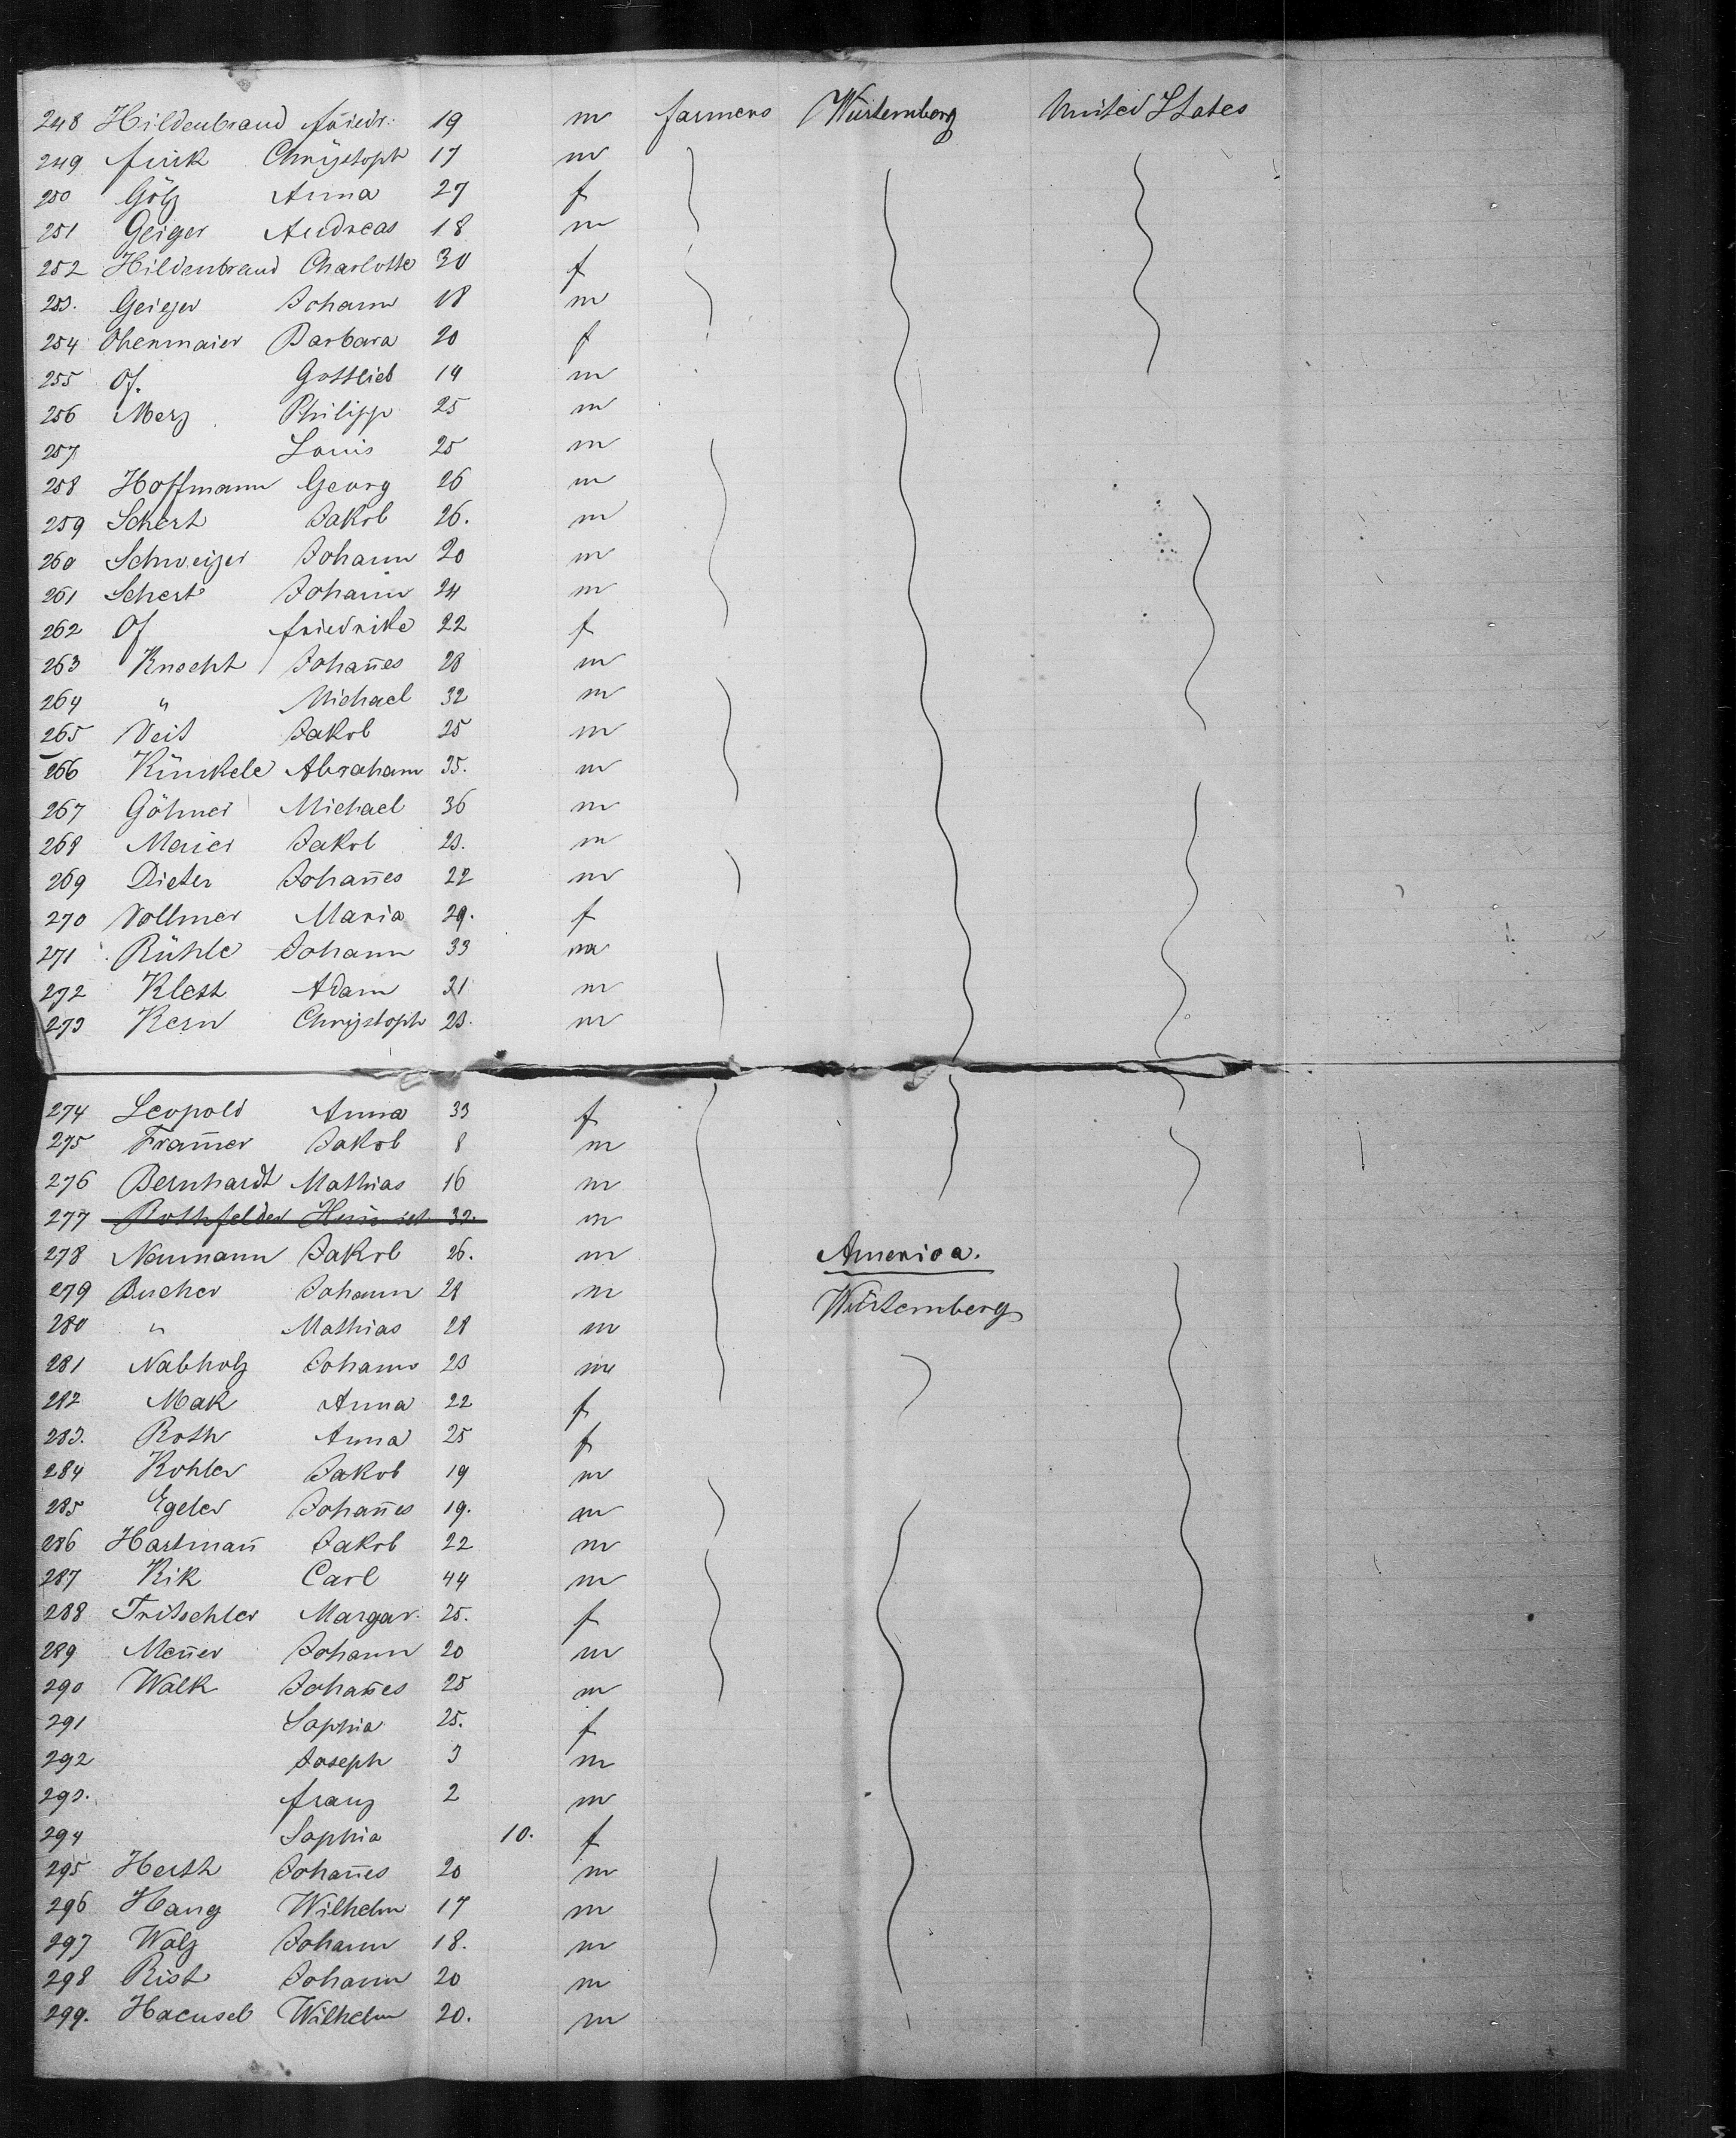 248 Hildenbrand Friedr. 19 m farmers Würtemberg United States
249 Fink Christoph 17 m
250 Götz Anna 27 f
251 Geiger Andreas 18 m
252 Hildenbrand Charlotte 30 f
253. Geiger Johann 18 m
254 Ohenmaier Barbara 20 f
255 Of. Gottlieb 14 m
256 Merz Philipp 25 m
257 Louis 25 m
258 Hoffmann Georg 26 m
259 Schert Jakob 26. m
260 Schweizer Johann 20 m
261 Schert Johann 24 m
262 Of Friedrike 22 f
263 Knecht Johañes 28 m
264 " Michael 32 m
265 Veit Jakob 25 m
266 Künkele Abraham 35. m
267 Göhner Michael 36 m
268 Maier Jakob 23. m
269 Dieter Johañes 22 m
270 Vollmer Maria 29. f
271 Rühle Johann 33 m
272 Klett Adam 31 m
273 Kern Christoph 23. m
274 Leopold Anna 33 f
275 Fram̄er Jakob 8 m
276 Bernhardt Mathias 16 m
277 Rothfelder 32. m
278 Naumann Jakob 26. m America.
279 Bucher Johann 28 m Würtemberg
280 " Mathias 28 m
281 Nabholz Johann 23 m
282 Mak Anna 22 f
283. Roth Anna 25 f
284 Kohler Jakob 19 m
285 Egeler Johañes 19. m
286 Hartmañ Jakob 22 m
287 Kik Carl 44 m
288 Fritschler Margar. 25. f
289 Meñer Johann 20 m
290 Walk Johañes 25 m
291 Sophia 25. f
292 Joseph 3 m
293. Franz 2 m
294 Sophia 10. f
295 Herth Johañes 20 m
296 Haug Wilhelm 17 m
297 Walz Johann 18. m
298 Rist Johann 20 m
299. Haeusel Wilhelm 20. m